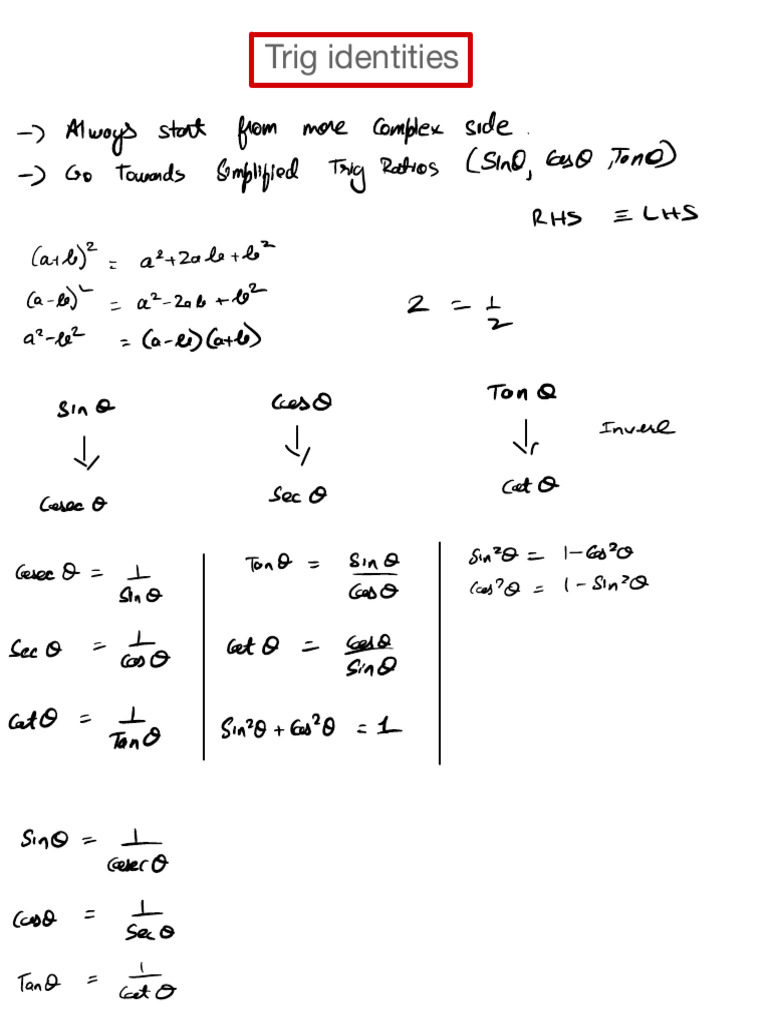 Trig identities
-> Always start from more complex side.
-> Go Towards Simplified Trig Ratios (Sinθ, Cosθ, Tanθ)
RHS ≡ LHS
(a+b)² = a²+2ab+b²
(a-b)² = a²-2ab+b²
2 = 1/2
a²-b² = (a-b)(a+b)
Sin θ Cosθ Tan θ
↓ ↓ ↓ Inverse
Cosec θ Sec θ Cot θ
Cosec θ = 1/Sin θ
Sec θ = 1/Cos θ
Cot θ = 1/Tan θ
Tan θ = Sin θ/Cos θ
Cot θ = Cosθ/Sinθ
Sin²θ + Cos²θ = 1
Sin²θ = 1-Cos²θ
Cos²θ = 1-Sin²θ
Sinθ = 1/Cosec θ
Cosθ = 1/Sec θ
Tanθ = 1/Cot θ